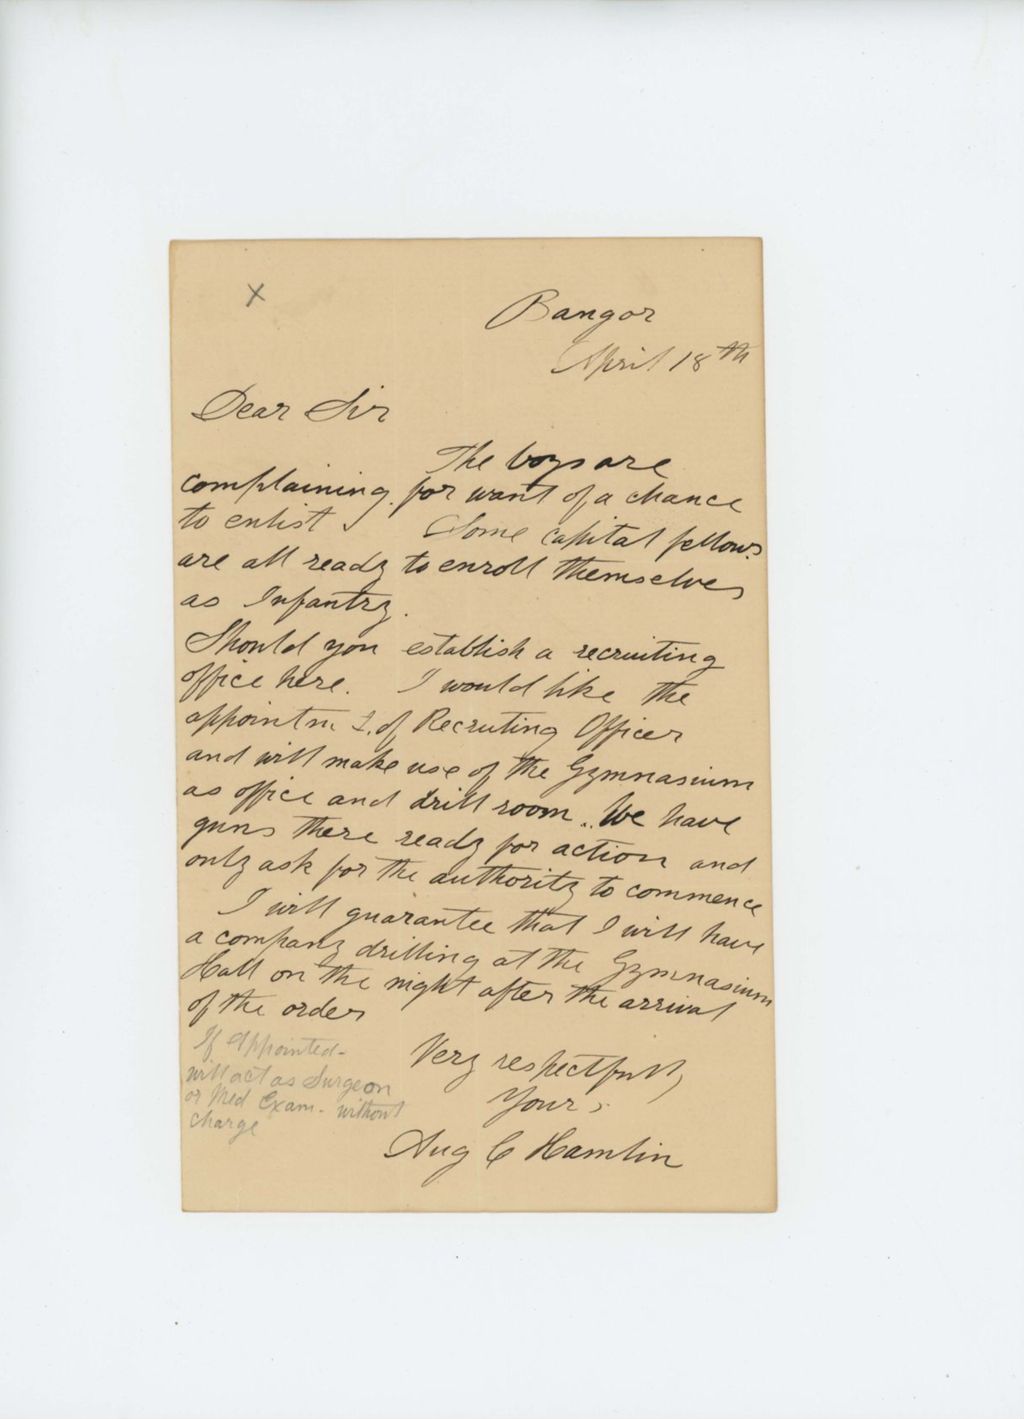 x
Bangor
April 18th
Dear Sir
The boys are
complaining for want of a chance
to enlist Some capital fellows
are all ready to enroll themselves
as Infantry.
Should you establish a recruiting
office here. I would like the
appointmt. of Recruting Officer
and will make use of the Gymnasium
as office and drill room.. We have
guns there ready for action and
only ask for the authority to commence
I will guarantee that I will have
a company drilling at the Gymnasium
Hall on the night after the arrival
of the order
Very respectfully
Yours
Aug C Hamlin
If appointed-
will act as Surgeon
or Med Exam. without
charge